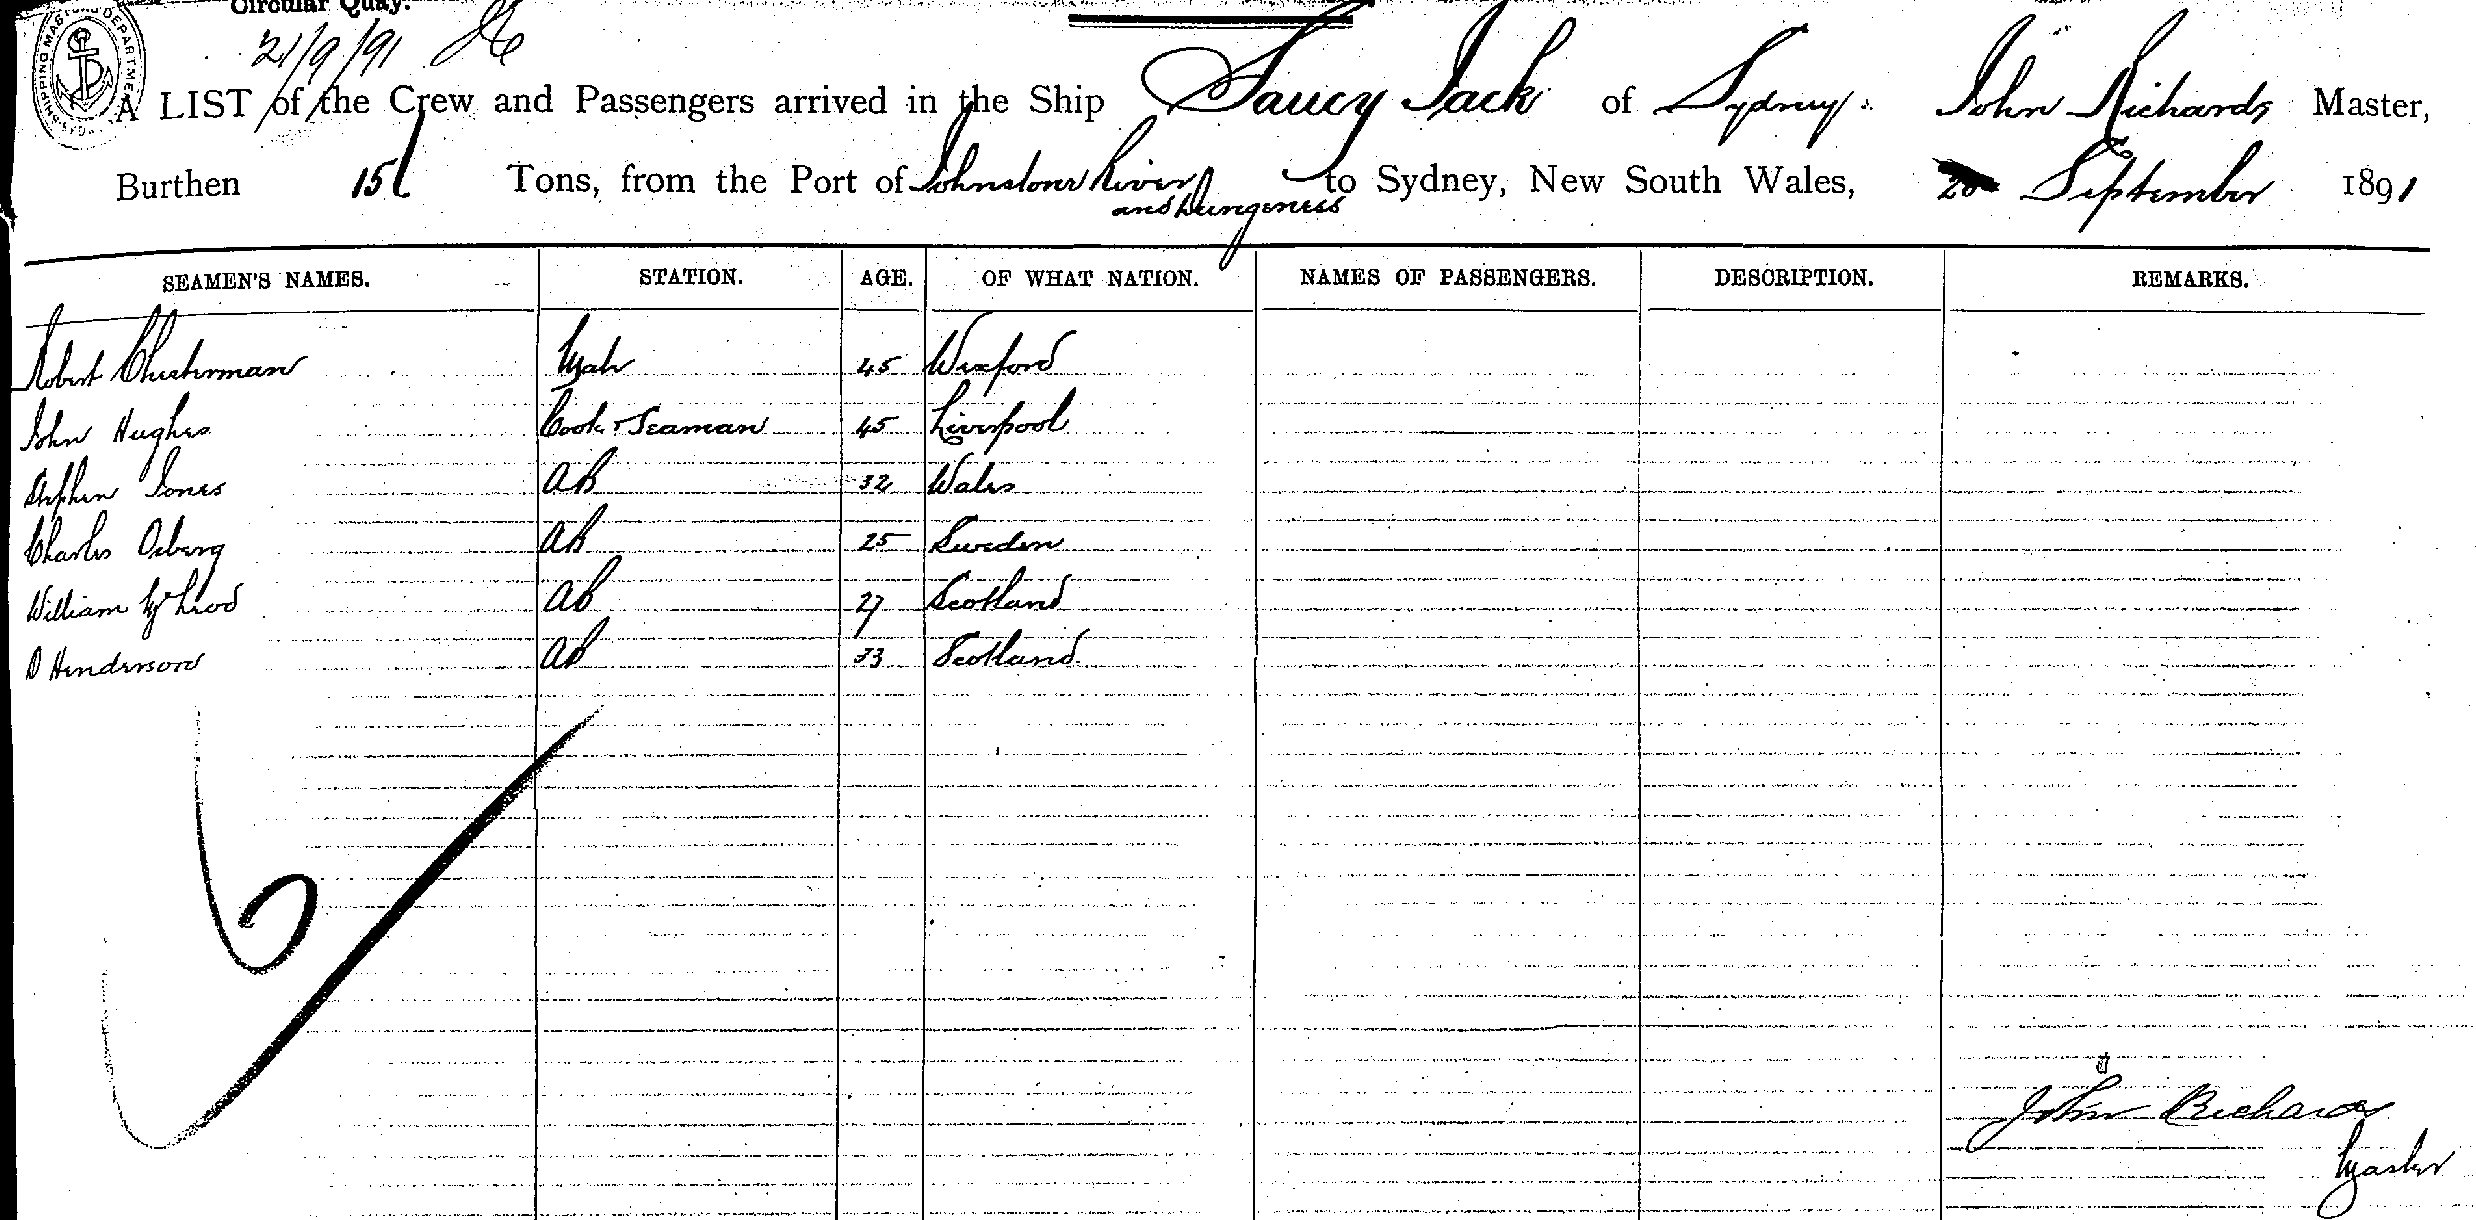 Circular Quay.
SHIPPING MASTERS DEPARTMENT SYDNEY
21/9/91
A LIST of the Crew and Passengers arrived in the Ship Saucy Jack of Sydney John Richards Master,
Burthen 151 Tons, from the Port of Johnstone River to Sydney, New South Wales, 20 September 1891
and Dungeness
SEAMEN'S NAMES. STATION. AGE. OF WHAT NATION. NAMES OF PASSENGERS. DESCRIPTION. REMARKS.
Robert Chesterman Mate 45 Wexford
John Hughes Cook + Seaman 45 Liverpool
Stephen Jones AB 32 Wales
Charles Osberg AB 25 Sweden
William McLeod AB 27 Scotland
D Henderson AB 33 Scotland
6
John Richards
Master